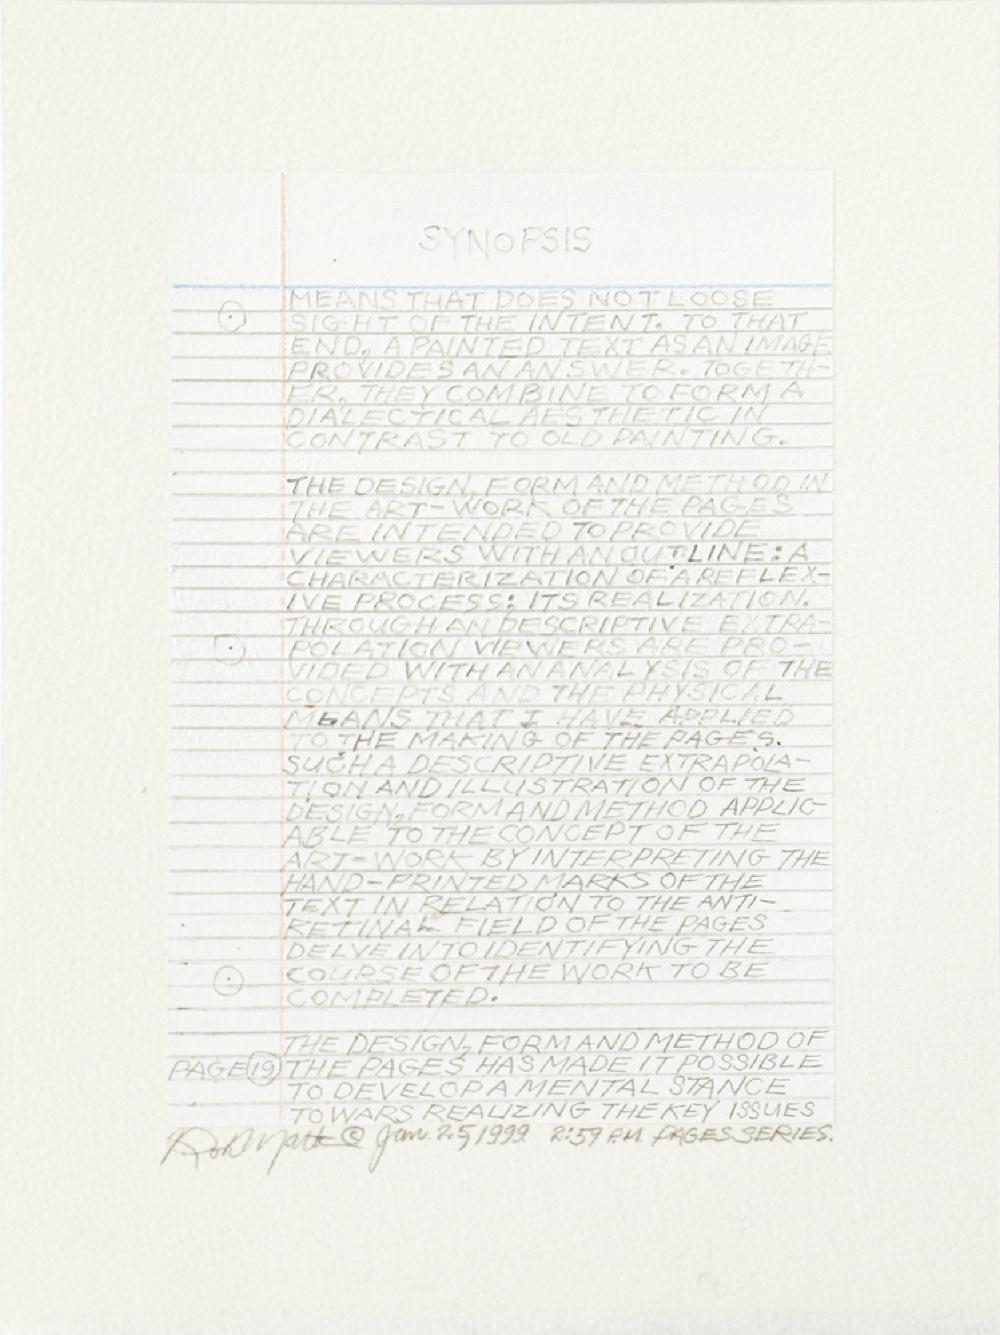 SYNOPSIS
MEANS THAT DOES NOT LOOSE
SIGHT OF THE INTENT. TO THAT
END, A PAINTED TEXT AS AN IMAGE
PROVIDES AN ANSWER. TOGETH-
ER, THEY COMBINE TO FORM A
DIALECTICAL AESTHETIC IN
CONTRAST TO OLD PAINTING.
THE DESIGN, FORM AND METHOD IN
THE ART-WORK OF THE PAGES
ARE INTENDED TO PROVIDE
VIEWERS WITH AN OUTLINE: A
CHARACTERIZATION OF A REFLEX-
IVE PROCESS: ITS REALIZATION.
THROUGH AN DESCRIPTIVE EXTRA-
POLATION VIEWERS ARE PRO-
VIDED WITH AN ANALYSIS OF THE
CONCEPTS AND THE PHYSICAL
MEANS THAT I HAVE APPLIED
TO THE MAKING OF THE PAGES.
SUCH A DESCRIPTIVE EXTRAPOLA-
TION AND ILLUSTRATION OF THE
DESIGN, FORM AND METHOD APPLIC-
ABLE TO THE CONCEPT OF THE
ART-WORK BY INTERPRETING THE
HAND-PRINTED MARKS OF THE
TEXT IN RELATION TO THE ANTI-
RETINAL FIELD OF THE PAGES
DELVE INTO IDENTIFYING THE
COURSE OF THE WORK TO BE
COMPLETED.
THE DESIGN, FORM AND METHOD OF
PAGE 19 THE PAGES HAS MADE IT POSSIBLE
TO DEVELOP A MENTAL STANCE
TOWARS REALIZING THE KEY ISSUES
© Jan. 25, 1999 2:59 P.M. PAGES SERIES.